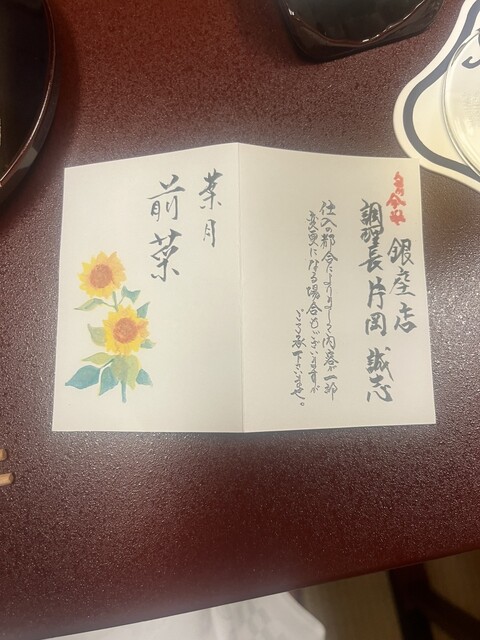 銀座店
調理長 片岡 誠志
仕入の都合によりまして内容が一部
変更になる場合もございますが
ご了承下さいませ。
葉月
前菜